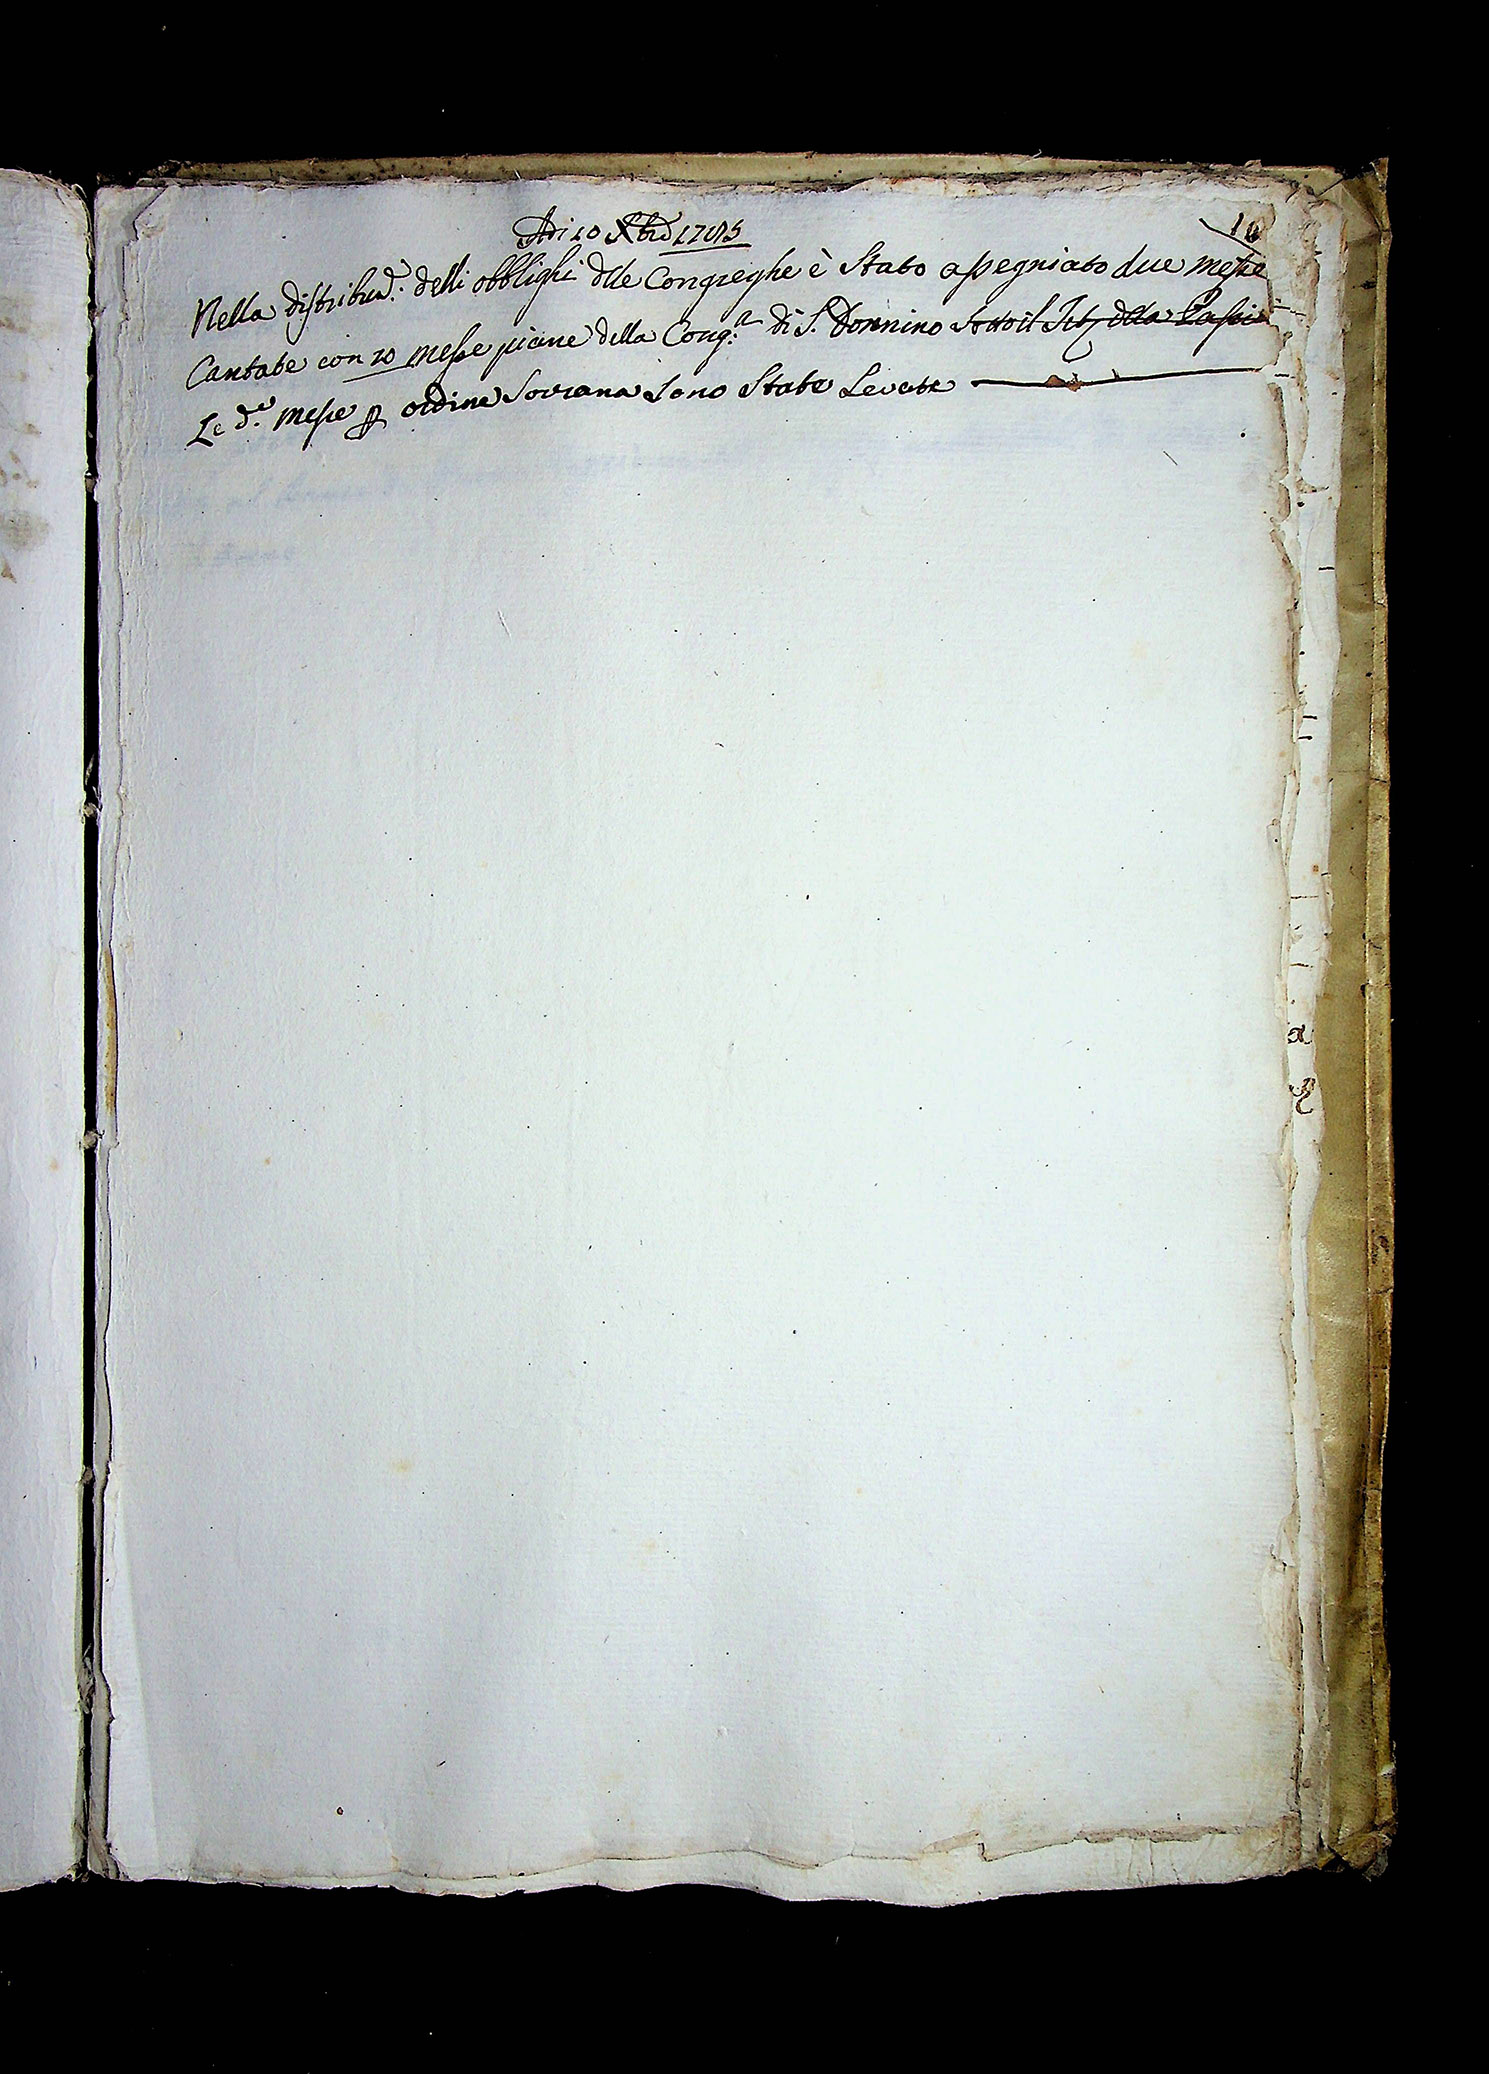 10
Adi 10 Xbre 1785
Nella distribuz.e delli obblighi dlle Congreghe è Stato assegniato due messe
Cantate con 20 messe piane della Cong.a di S. Donnino Sotto il Tit dlla Passi
Le d.e messe p ordine Sovrana Sono State Levate